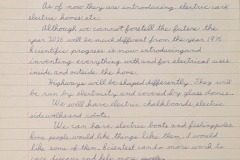 As of now they are introducing electric cars
electric homes etc.
Although we cannot foretell the future the
year 2076 will be much different from the year 1976.
Scientific progress is now introducing and
inventing everything with and for electrical uses
inside and outside the home.
Highways will be shaped differently. They will
be run by electricity and covered by glass domes.
We will have electric chalkboards, electric
sidewalks and robots.
We can have electric boats and fishing poles
some people would like things like them. I would
like some of them. Scientist can do more work to
cure diseases and help more people.